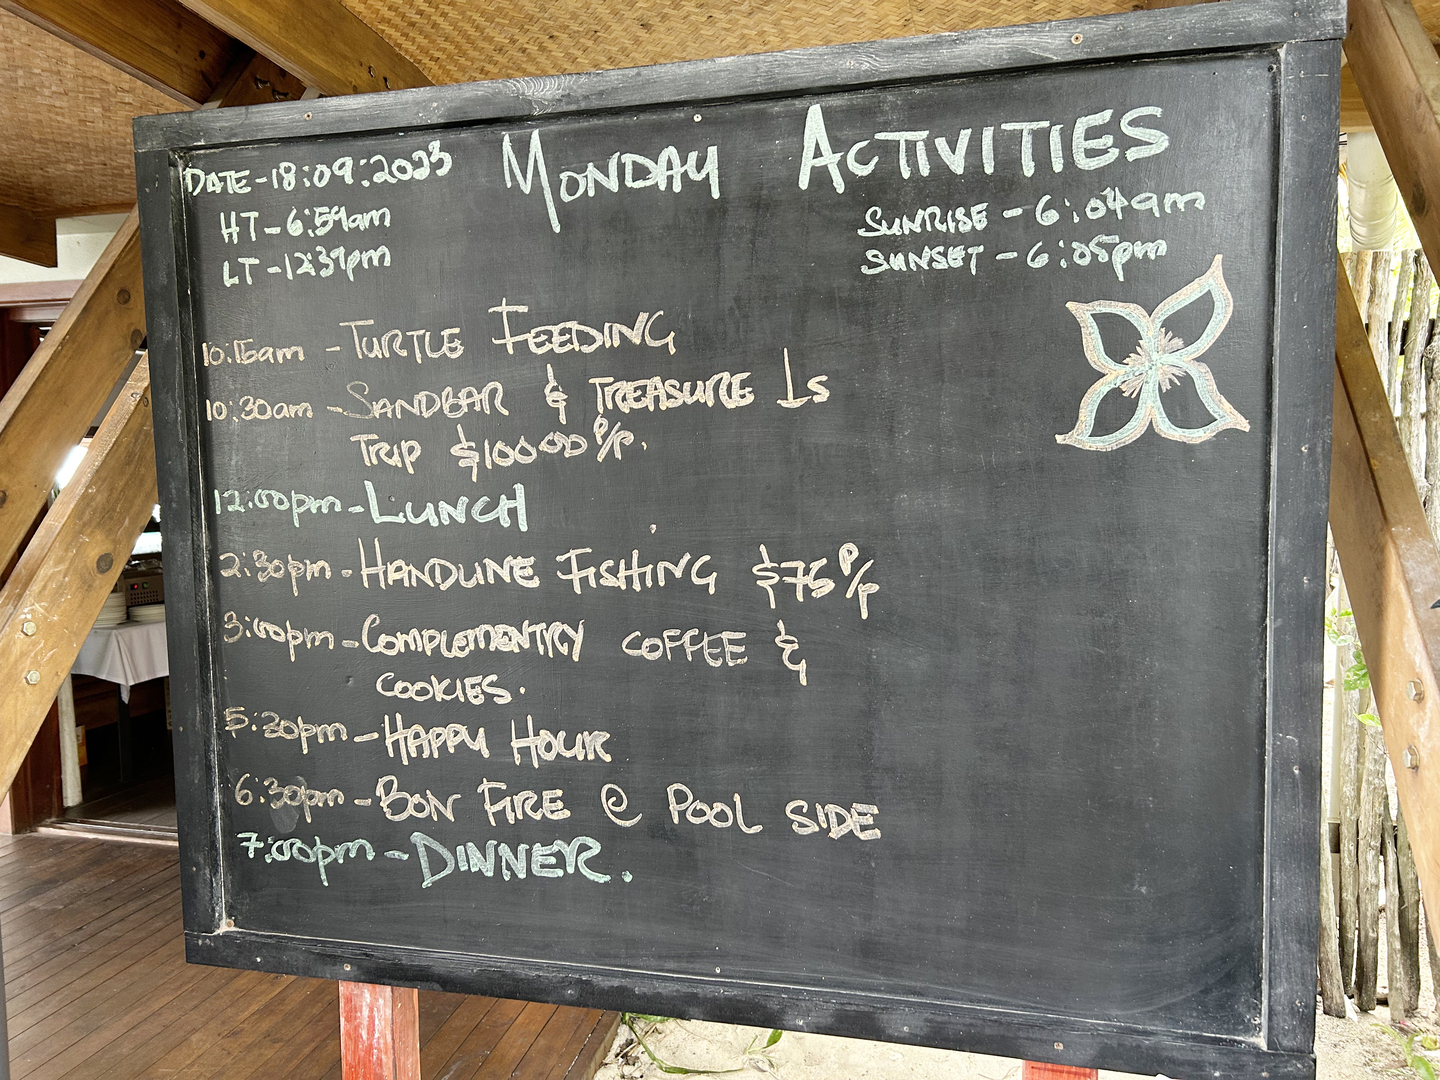 DATE-18:09:2023
MONDAY ACTIVITIES
HT-6:59am
LT-12:39pm
SUNRISE - 6:04am
SUNSET - 6:05pm
10:15am - TURTLE FEEDING
10:30am - SANDBAR & TREASURE Is
TRIP $100.00 P/P.
12:00pm - LUNCH
2:30pm - HANDLINE FISHING $75 P/P
3:00pm - COMPLEMENTRY COFFEE &
COOKIES.
5:30pm - HAPPY HOUR
6:30pm - BON FIRE @ POOL SIDE
7:00pm - DINNER.